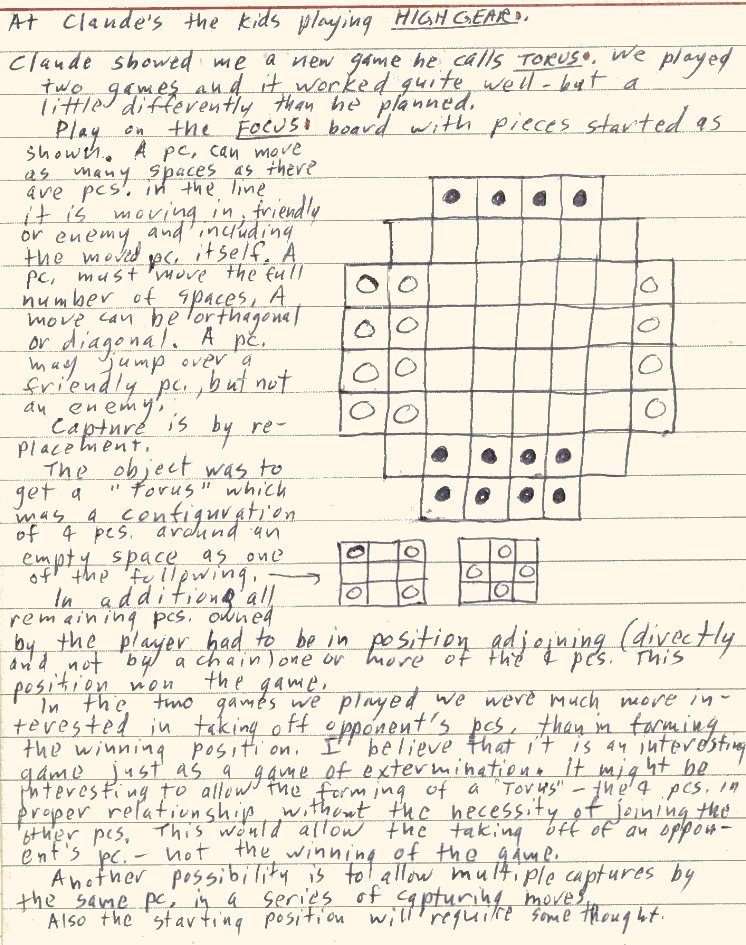 At Claude's the kids playing HIGH GEAR.
Claude showed me a new game he calls TORUS. We played
two games and it worked quite well - but a
little differently than he planned.
Play on the FOCUS board with pieces started as
shown. A pc. can move
as many spaces as there
are pcs. in the line
it is moving in, friendly
or enemy and including
the moved pc. itself. A
pc. must move the full
number of spaces. A
move can be orthagonal
or diagonal. A pc.
may jump over a
friendly pc., but not
an enemy.
Capture is by re-
placement.
The object was to
get a "Torus" which
was a configuration
of 4 pcs. around an
empty space as one
of the following.
In addition all
remaining pcs. owned
by the player had to be in position adjoining (directly
and not by a chain) one or more of the 4 pcs. This
position won the game.
In the two games we played we were much more in-
terested in taking off opponent's pcs. than in forming
the winning position. I believe that it is an interesting
game just as a game of extermination. It might be
interesting to allow the forming of a "Torus" - the 4 pcs. in
proper relationship without the necessity of joining the
other pcs. This would allow the taking off of an oppon-
ent's pc. - not the winning of the game.
Another possibility is to allow multiple captures by
the same pc. in a series of capturing moves.
Also the starting position will require some thought.